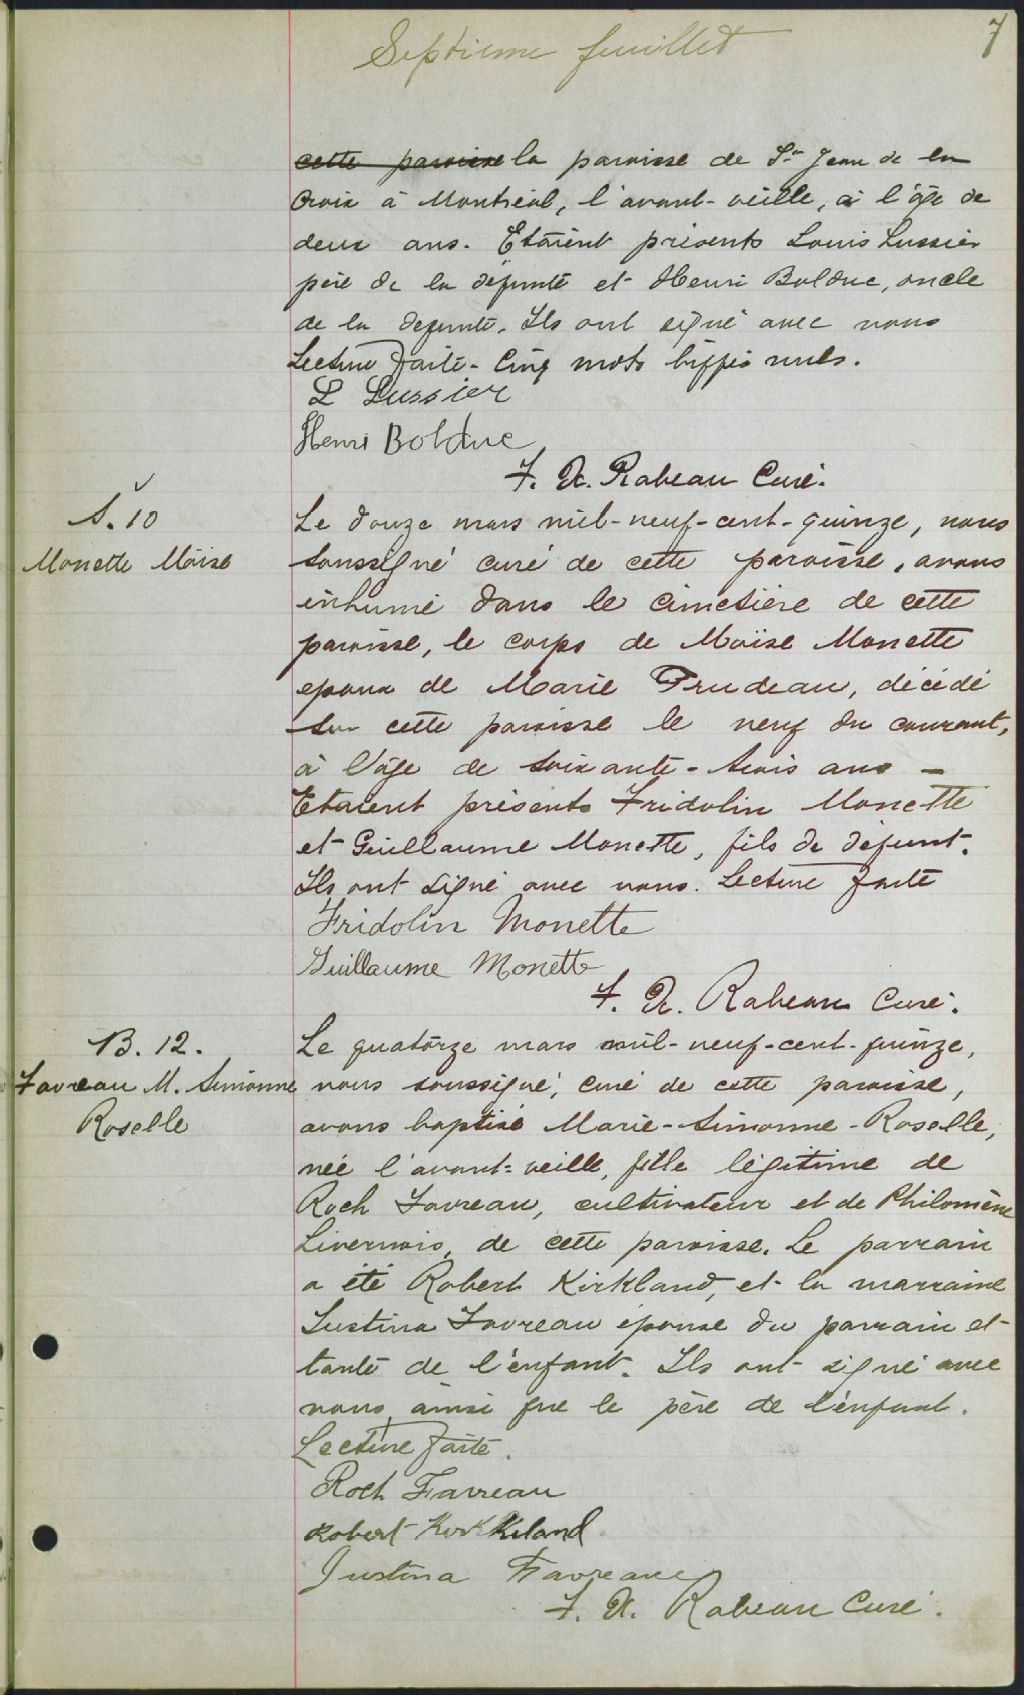 Septieme feuillet
7
cette paroisse la paroisse de St Jean de la
Croix à Montréal, l'avant-veille, à l'âge de
deux ans. Etaient présents Louis Lussier
père de la défunte et Henri Bolduc, oncle
de la defunte. Ils ont signé avec nous
Lecture faite. Cinq mots biffés nuls.
L Lussier
Henri Bolduc
F. X. Rabeau Curé.
S. 10
Monette Moise
Le douze mars mil-neuf-cent-quinze, nous
soussigné curé de cette paroisse, avons
inhumé dans le cimetière de cette
paroisse, le corps de Moïse Monette
epoux de Marie Prudeau, décédé
sur cette paroisse le neuf du courant,
à l'âge de soixante-trois ans —
Etaient présents Fridolin Monette
et Guillaume Monette, fils du défunt.
Ils ont signé avec nous. Lecture faite
Fridolin Monette
Guillaume Monette
F. X. Rabeau Curé.
B. 12.
Favreau M. Simonne
Roselle
Le quatorze mars mil-neuf-cent-quinze,
nous soussigné, curé de cette paroisse,
avons baptisé Marie-Simonne-Roselle,
née l'avant-veille, fille légitime de
Roch Favreau, cultivateur et de Philomène
Livernois, de cette paroisse. Le parrain
a été Robert Kirkland, et la marraine
Justina Favreau épouse du parrain et
tante de l'enfant. Ils ont signé avec
nous ainsi que le père de l'enfant.
Lecture faite.
Roch Favreau
Robert Kirkland
Justina Favreau
F. X. Rabeau Curé.